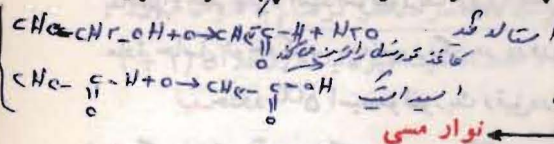 CH۳-CH۲-OH+O→CH۳-C-H+H۲O استالدئید
O کاغذ تورنسل را قرمز می‌کند
CH۳-C-H+O→CH۳-C-OH اسید استیک
O O
نوار مسی